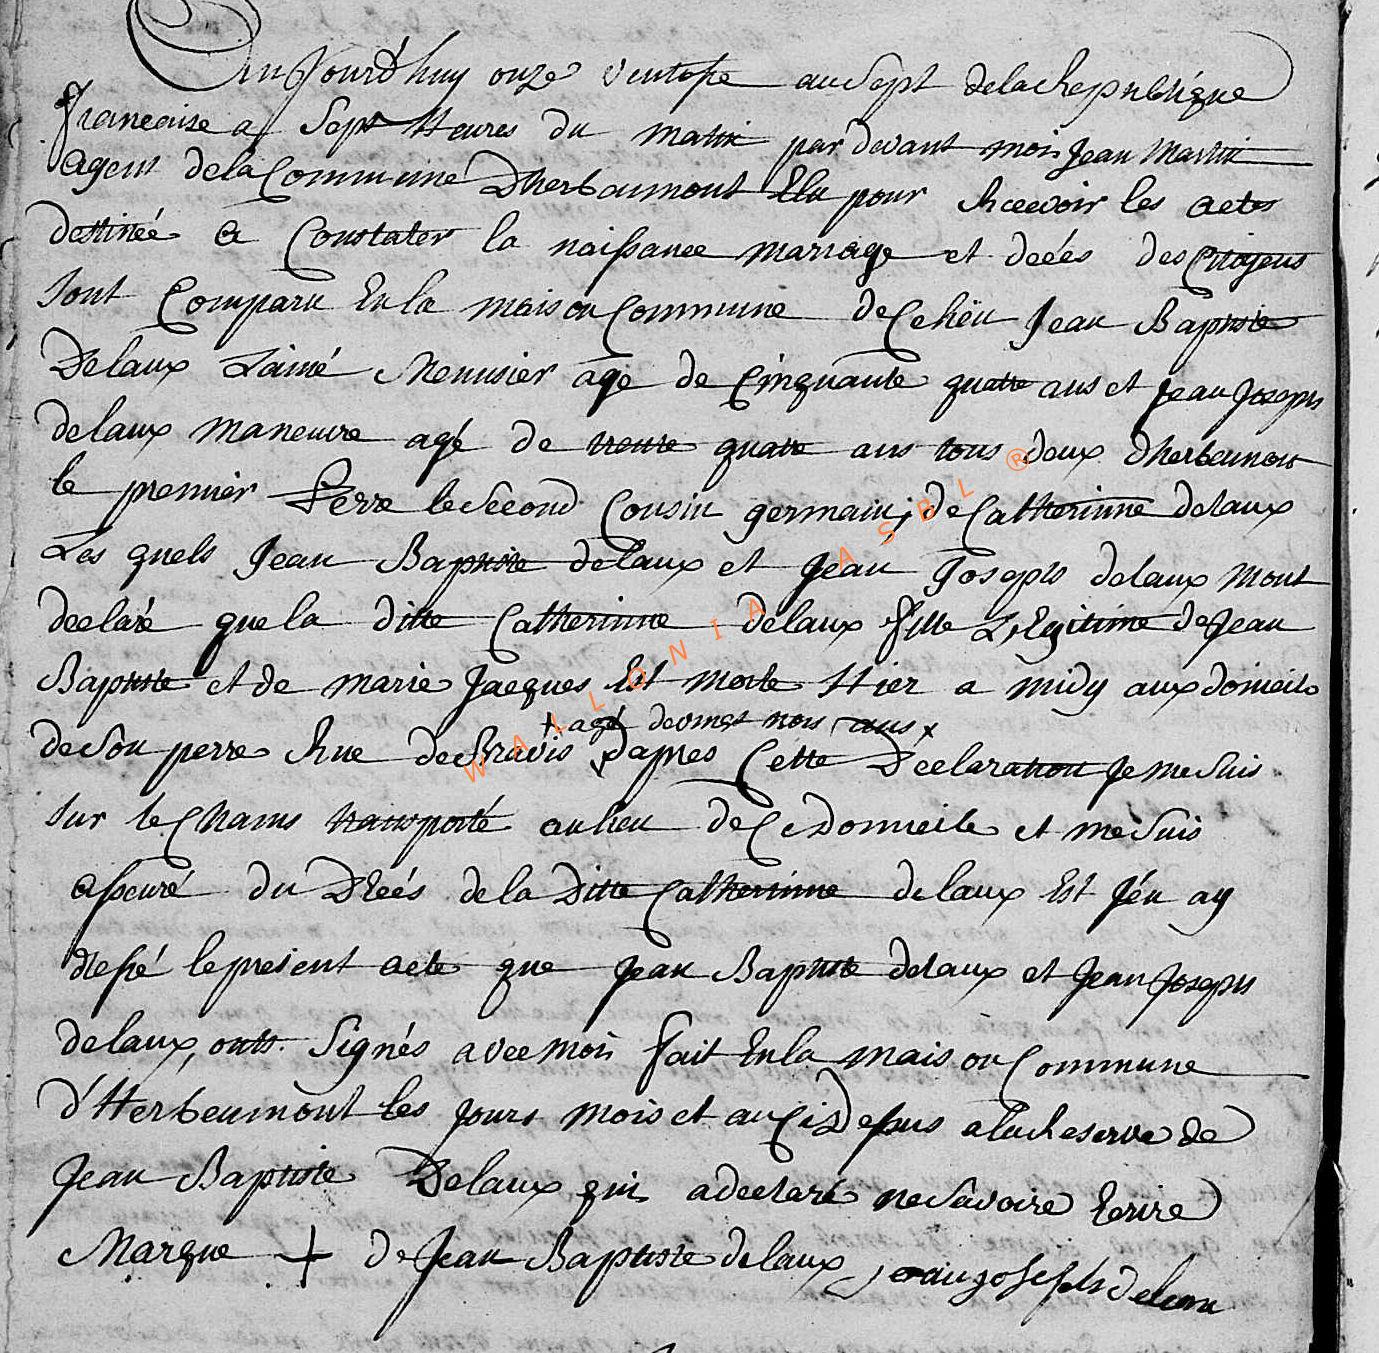 Aujourd'huy onze ventose an Sept de la Republique
francaise a Sept Heures du matin par devant moi Jean Martin
agent de la Commune Dherbeumont Elu pour Recevoir les actes
destinéé a Constater la naissance mariage et décés des Citoyens
Sont Comparu En la maison Commune de Ce lieu Jean Baptiste
Delaux Lainé Menusier agé de Cinquante quatre ans et Jean Joseph
delaux maneuvre agé de trente quatre ans tous deux dherbeumont
le premier Perre le Second Cousin germain, de Catherinne delaux
Les quels Jean Baptiste delaux et Jean Joseph delaux mont
declaré que la ditte Catherinne delaux fille Legitime de Jean
Baptiste et de marie Jacques Est morte Hier a midy aux domicile
+ agé de vingt trois ans x
de Son perre Rue de dapres Cette Déclaration Je me Suis
Sur le Chams transporté au lieu de Ce Domicile et me Suis
assuré du Décés de la Ditte Catherinne delaux Est Jén ay
dressé le present acte que Jean Baptiste delaux et Jean Joseph
delaux, onts Signés avec moi fait En la maison Commune
d'Herbeumont les Jours mois et an Ci Dessus a la Reserve de
Jean Baptiste Delaux qui a declaré ne Savoire Ecrire
Marque + de Jean Baptiste delaux jean joseph delaux
WALLONIA ASBL ®